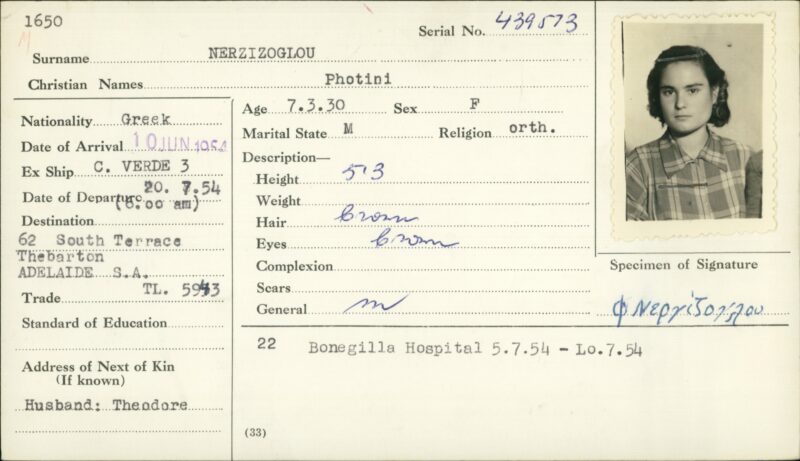 1650
Serial No. 439573
M
Surname NERZIZOGLOU
Christian Names Photini
Nationality Greek
Date of Arrival 10 JUN 1954
Ex Ship C. VERDE 3
Date of Departure 20. 7.54
(6.00 am)
Destination
62 South Terrace
Thebarton
ADELAIDE S.A.
Trade TL. 5943
Standard of Education
Address of Next of Kin
(If known)
Husband: Theodore
Age 7.3.30 Sex F
Marital State M Religion orth.
Description—
Height 5'3
Weight
Hair brown
Eyes brown
Complexion
Scars
General m
Specimen of Signature
Φ Νερζίζογλου
22 Bonegilla Hospital 5.7.54 - Lo.7.54
(33)